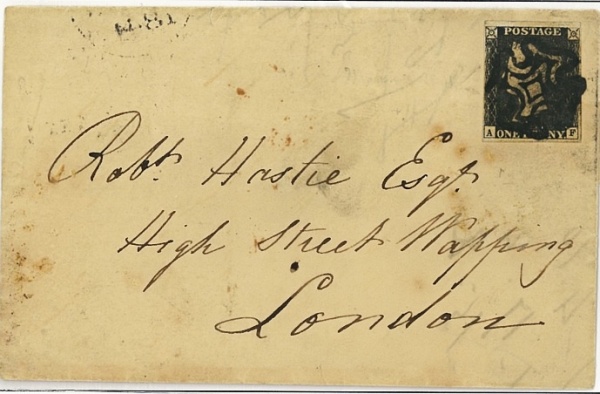 POSTAGE
A ONE PENNY F
Robt. Hastie Esqr.
High Street Wapping
London